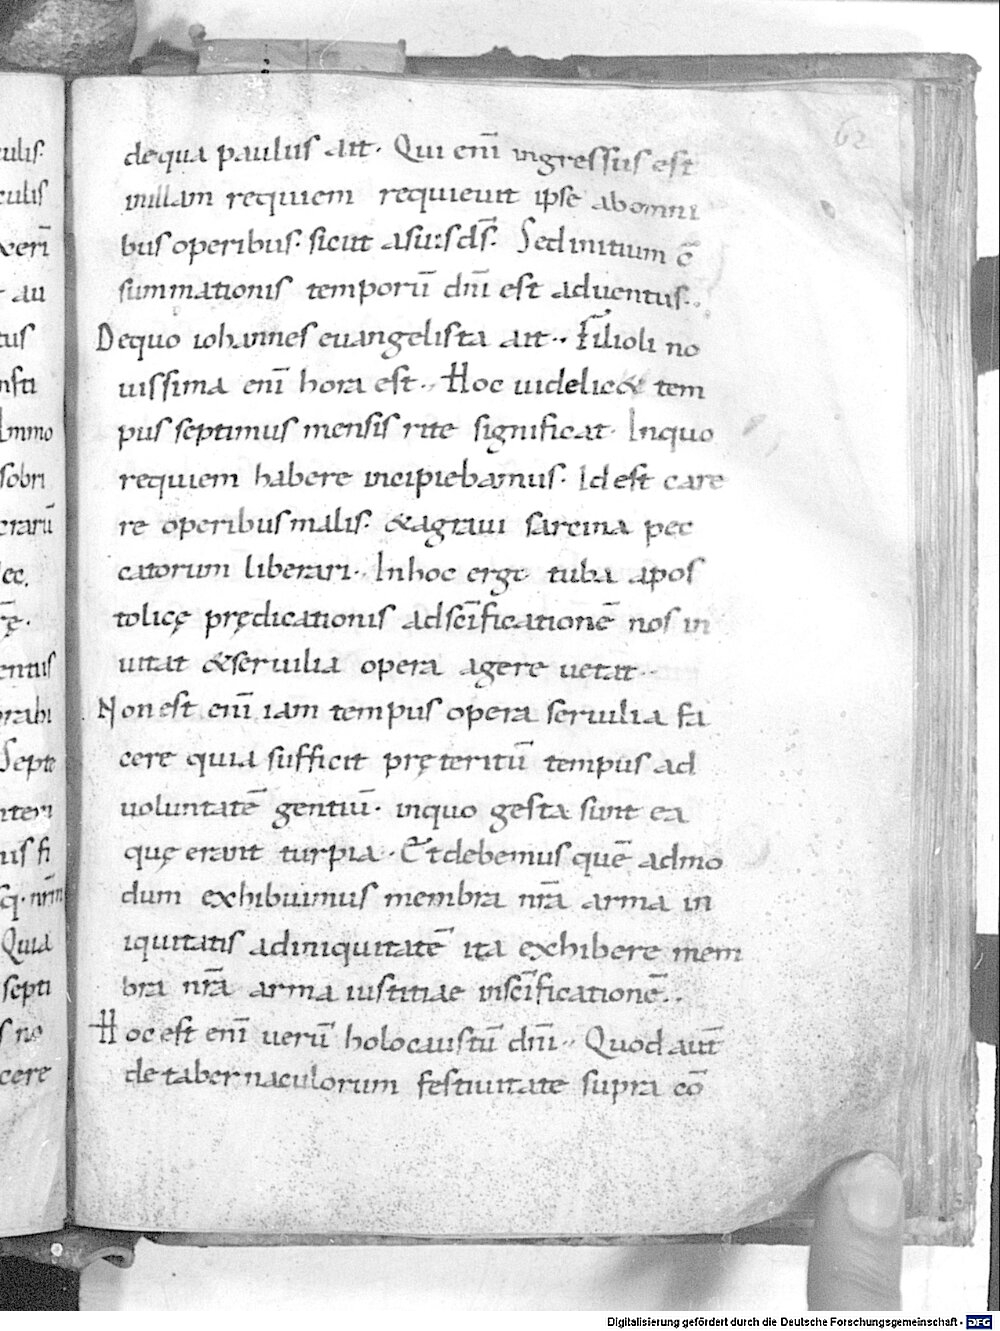 ulis.
culis
xerī
au
tus
nsti
Immo
sobri
erarū
ec.
rę.
entus
orabi
Septe
nteri
us fi
sq. nrm
Quia
septi
s no
cere
62
dequa paulus ait. Qui enī ingressus est
in illam requiem requieuit ipse abomni
bus operibus. sicut asuis ds̄. Sed initium c̄
summationis temporū dn̄i est aduentus.
Dequo iohannes euangelista ait. Filioli no
uissima enī hora est. Hoc uidelic& tem
pus septimus mensis rite significat. Inquo
requiem habere incipiebamus. Id est care
re operibus malis. &agraui sarcina pec
catorum liberari. Inhoc ergo tuba apos
tolicę prędicationis adsc̄ificationē nos in
uitat &seruilia opera agere uetat.
Non est enī iam tempus opera seruilia fa
cere quia sufficit pręteritū tempus ad
uoluntatē gentiū. inquo gesta sunt ea
quę erant turpia. Et debemus quē admo
dum exhibuimus membra nr̄a arma in
iquitatis adiniquitatē ita exhibere mem
bra nr̄a arma iustitiae insc̄ificationē.
Hoc est enī uerū holocaustū dn̄i. Quod aut̄
de tabernaculorum festiuitate supra cō
Digitalisierung gefördert durch die Deutsche Forschungsgemeinschaft - DFG